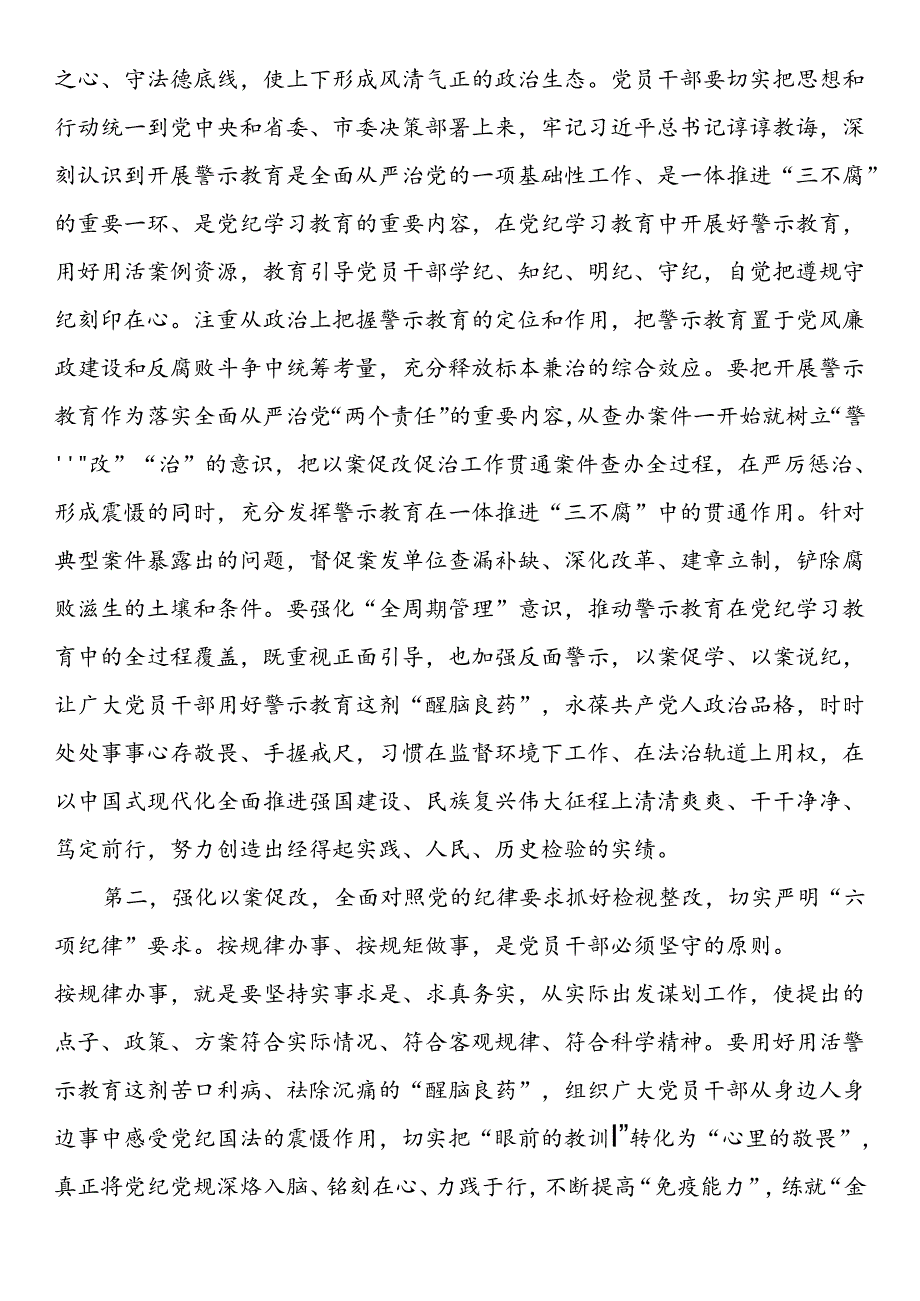 之心、守法德底线，使上下形成风清气正的政治生态。党员干部要切实把思想和
行动统一到党中央和省委、市委决策部署上来，牢记习近平总书记谆谆教诲，深
刻认识到开展警示教育是全面从严治党的一项基础性工作、是一体推进“三不腐”
的重要一环、是党纪学习教育的重要内容，在党纪学习教育中开展好警示教育，
用好用活案例资源，教育引导党员干部学纪、知纪、明纪、守纪，自觉把遵规守
纪刻印在心。注重从政治上把握警示教育的定位和作用，把警示教育置于党风廉
政建设和反腐败斗争中统筹考量，充分释放标本兼治的综合效应。要把开展警示
教育作为落实全面从严治党“两个责任”的重要内容，从查办案件一开始就树立“警
''"改”“治”的意识，把以案促改促治工作贯通案件查办全过程，在严厉惩治、
形成震慑的同时，充分发挥警示教育在一体推进“三不腐”中的贯通作用。针对
典型案件暴露出的问题，督促案发单位查漏补缺、深化改革、建章立制，铲除腐
败滋生的土壤和条件。要强化“全周期管理”意识，推动警示教育在党纪学习教
育中的全过程覆盖，既重视正面引导，也加强反面警示，以案促学、以案说纪，
让广大党员干部用好警示教育这剂“醒脑良药”，永葆共产党人政治品格，时时
处处事事心存敬畏、手握戒尺，习惯在监督环境下工作、在法治轨道上用权，在
以中国式现代化全面推进强国建设、民族复兴伟大征程上清清爽爽、干干净净、
笃定前行，努力创造出经得起实践、人民、历史检验的实绩。
第二，强化以案促改，全面对照党的纪律要求抓好检视整改，切实严明“六
项纪律”要求。按规律办事、按规矩做事，是党员干部必须坚守的原则。
按规律办事，就是要坚持实事求是、求真务实，从实际出发谋划工作，使提出的
点子、政策、方案符合实际情况、符合客观规律、符合科学精神。要用好用活警
示教育这剂苦口利病、祛除沉痛的“醒脑良药”，组织广大党员干部从身边人身
边事中感受党纪国法的震慑作用，切实把“眼前的教训|”转化为“心里的敬畏”，
真正将党纪党规深烙入脑、铭刻在心、力践于行，不断提高“免疫能力”，练就“金